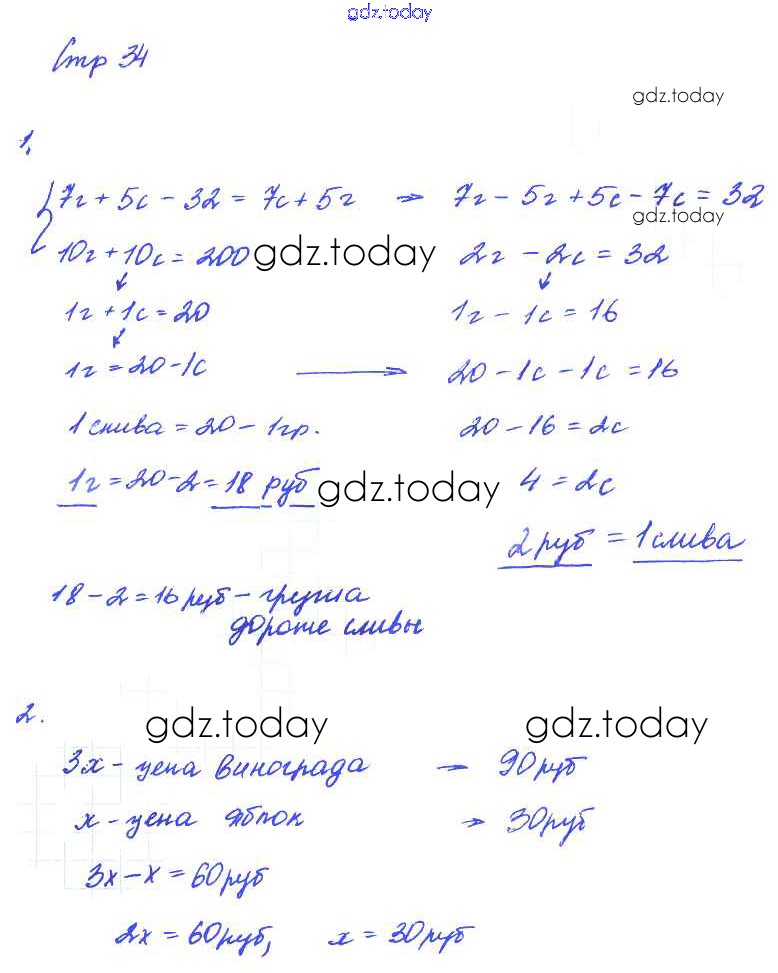 gdz.today
Стр 34
gdz.today
1.
7г + 5с - 32 = 7с + 5г → 7г - 5г + 5с - 7с = 32
gdz.today
10г + 10с = 200 gdz.today 2г - 2с = 32
1г + 1с = 20 1г - 1с = 16
1г = 20 - 1с → 20 - 1с - 1с = 16
1 слива = 20 - 1гр. 20 - 16 = 2с
1г = 20 - 2 = 18 руб gdz.today 4 = 2с
2 руб = 1 слива
18 - 2 = 16 руб - груша
дороже сливы
2. gdz.today gdz.today
3х - цена винограда → 90 руб
х - цена яблок → 30 руб
3х - х = 60 руб
2х = 60 руб, х = 30 руб